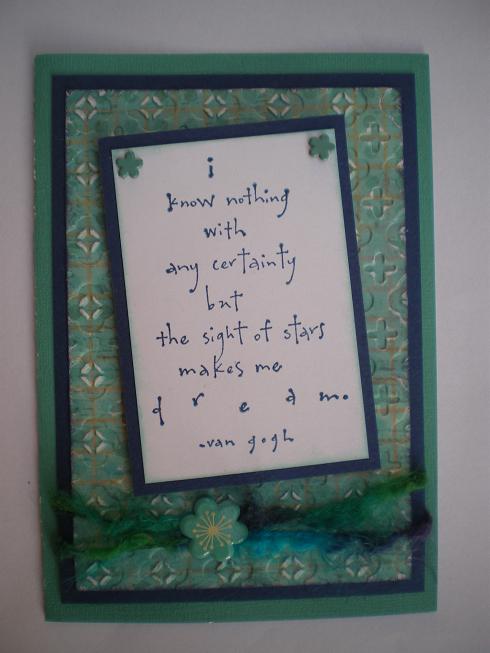 i
know nothing
with
any certainty
but
the sight of stars
makes me
d r e a m.
-van gogh